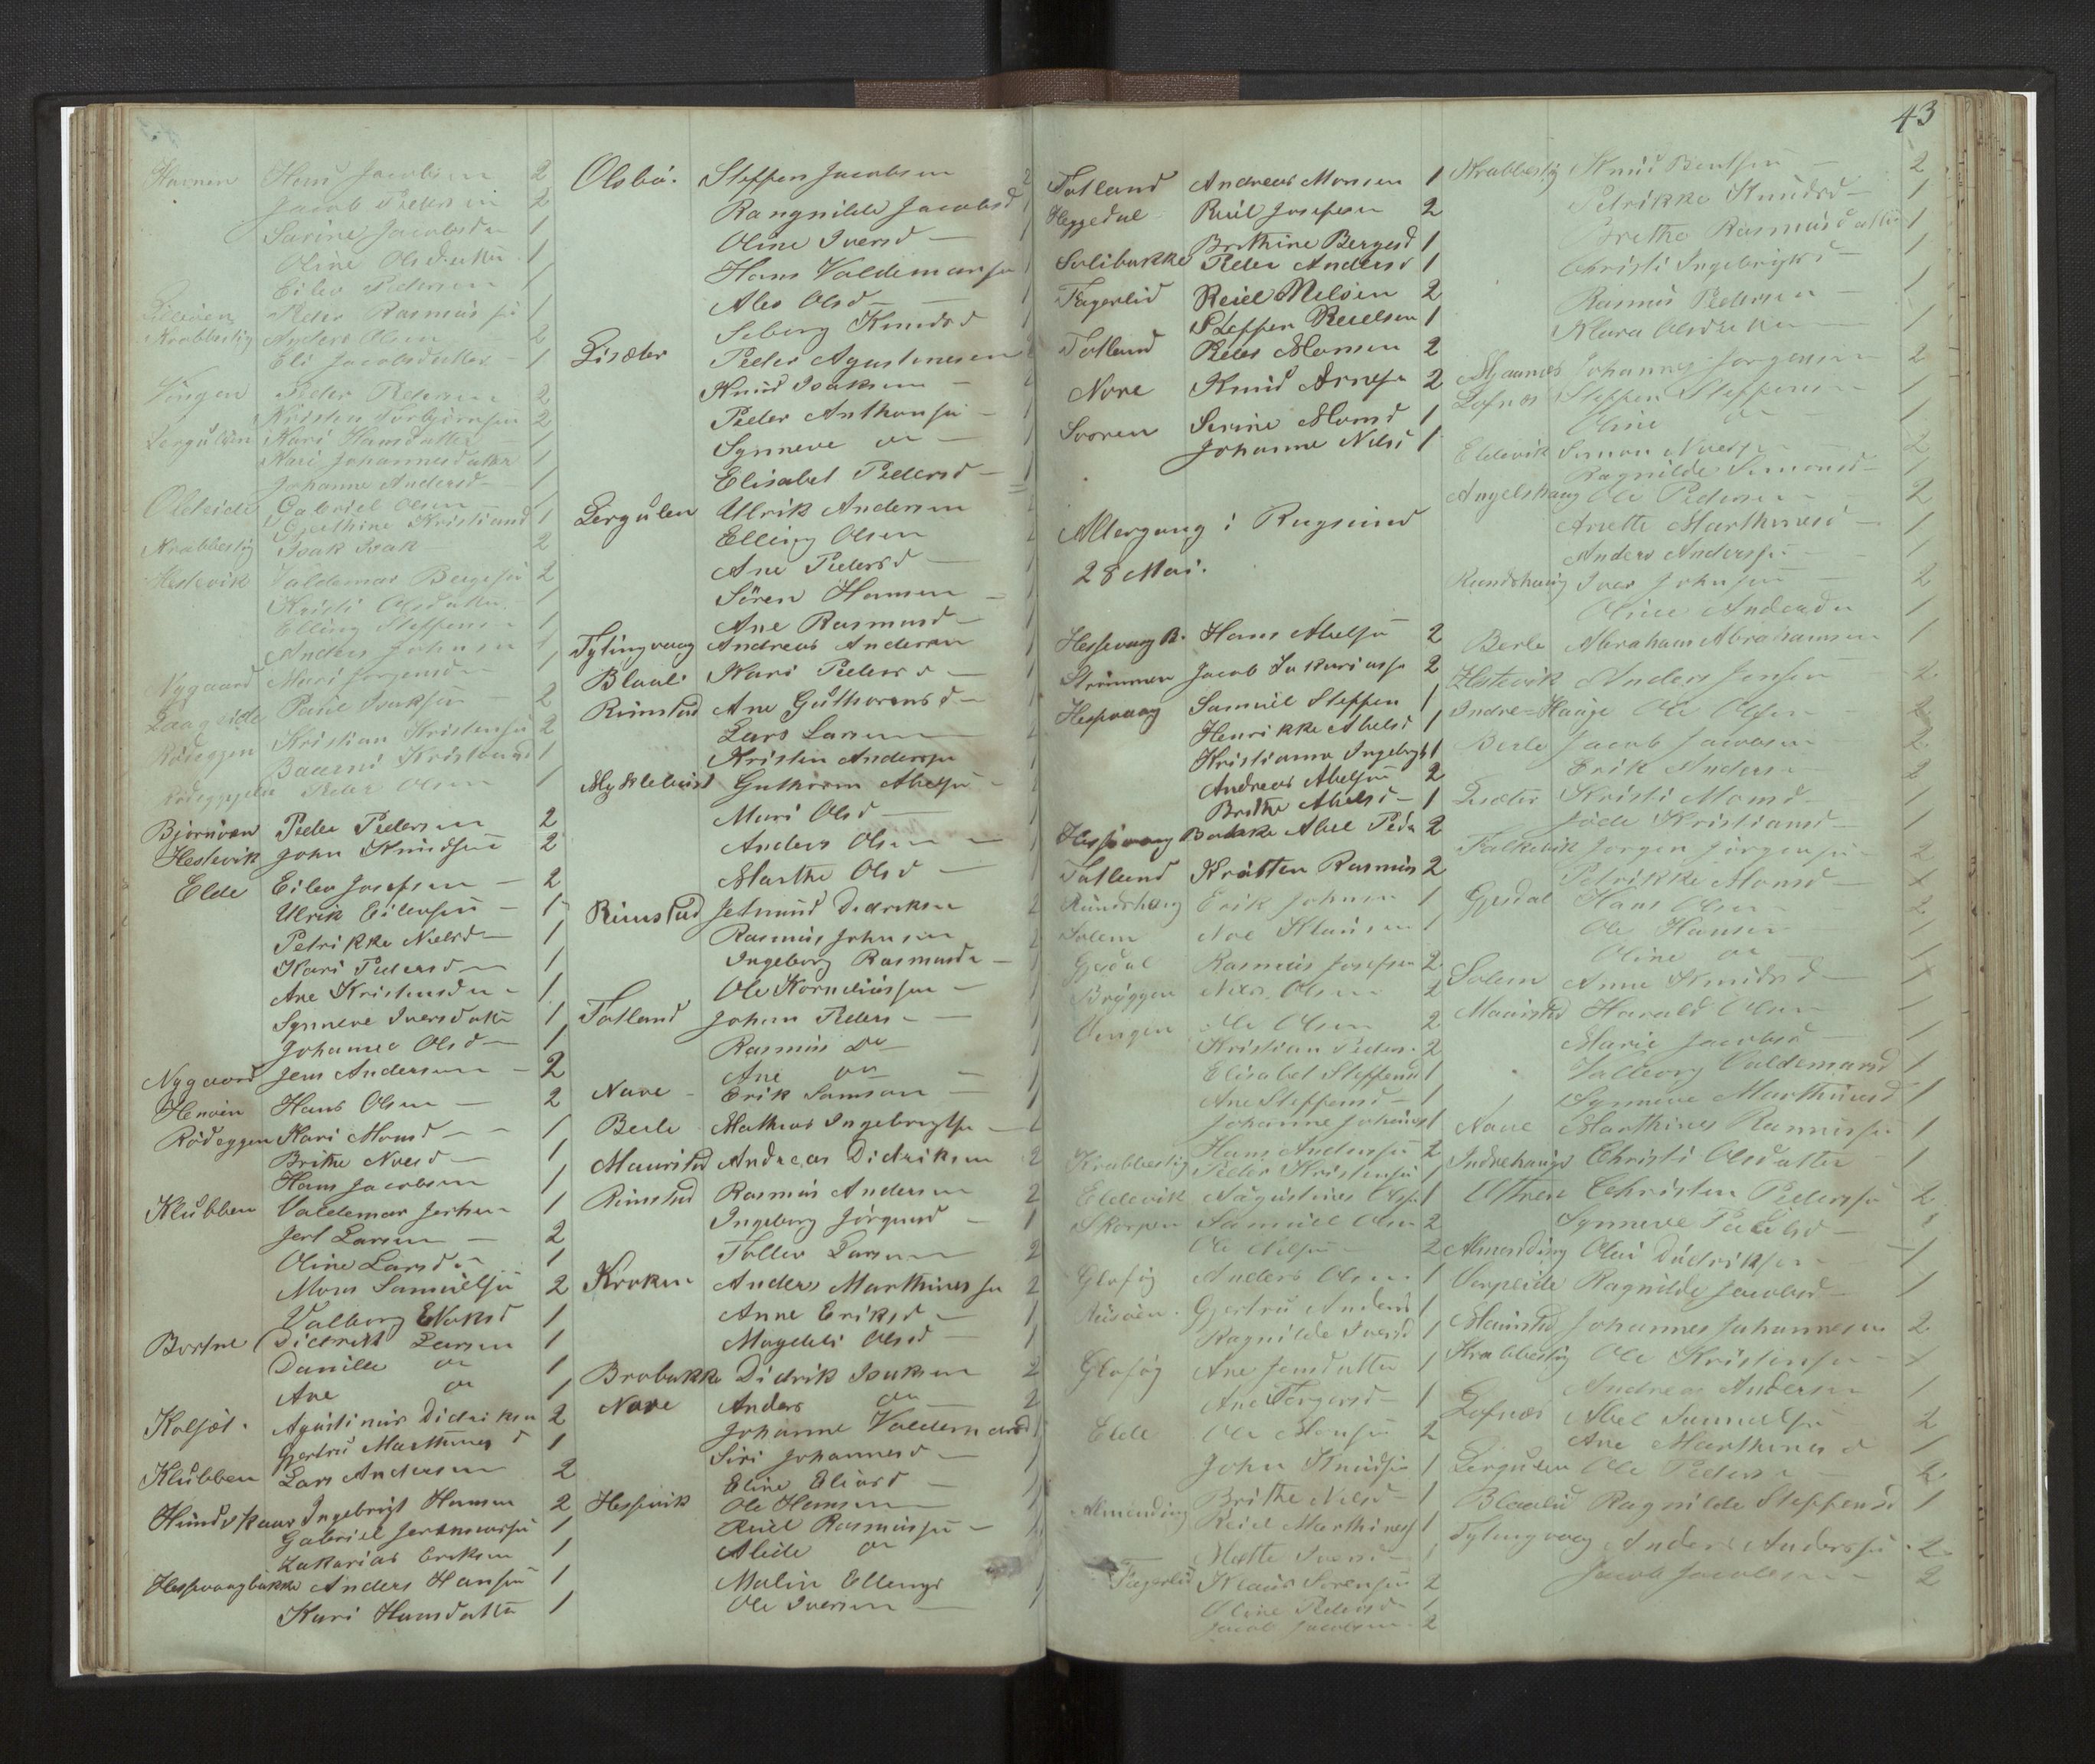 43
Havnen Hans Jacobsen 2
Jacob Pedersen 2
Sarine Jacobsd 1
Oline Olsdatter 1
Eilev Pedersen 1
Peder Rasmussen 1
Krabbestig Anders Olsen 2
Eli Jacobsdatter 1
Vengen Peder Pedersen 2
Kristen Torbjörnsen 2
Lergulen Kari Hansdatter 1
Kari Johannesdatter 1
Johanne Andersd 1
Gabriel Olsen 1
Gjerthine Kristiansd 1
Krabbestig Isak Isak 2
Hestevik Valdemar Bergesen 2
Kristi Olsdatter 1
Elling Steffensen 1
Anders Johnsen 1
Nygaard Mari Jorgensd 1
Paul Isaksen 2
Rödeggen Kristian Kristensen 2
Kristiansd 1
Peder Olsen 1
Björnöen Peder Pedersen 2
Hestevik John Knudsen 2
Elde Eilev Josefsen 2
Ulrik Eilevsen 1
Petrikke Nielsd 1
Kari Pedersd 1
Ane Kristensd 1
Synneve Iversdatter 1
Johanne Olsd 1
Nygaard Jens Andersen 2
Henöen Hans Olsen 2
Rödeggen Kari Monsd 1
Brithe Noesd 1
Hans Jacobsen 1
Klubben Valdemar 1
Larsen 2
Oline Larsd 1
Mons Samuelsen 2
Valborg 1
Bortne Didrik Larsen 1
Danille do 1
Ane do 1
Kolset Agustinus Didriksen 2
Gjertru Marthinesd 1
Klubben Lars Andersen 2
Hundskaar Ingebrigt Hansen 2
Gabriel 1
Zakarias Eriksen 1
Hessevaagbakke Anders Hansen 1
Kari Hansdatter 1
Olsbö Steffen Jacobsen 2
Rangnilde Jacobsd 1
Oline Iversd 1
Hans Valdemarsen 1
Ales Olsd 1
Seborg Knudsd 1
Lisæter Peder Agustinusen
Knud Isaksen
Peder Anthonsen 1
Synneve do 1
Elisabet Pedersd 1
Lergulen Ulrik Andersen
Elling Olsen
Ane Pedersd
Sören Hansen
Ane Rasmusd 1
Tytingvaag Andreas Andersen
Blaali Kari Pedersd 1
Rimstad Ane Guthormsd
Lars Larsen
Kristen Andersen
Myklebust Guthorm Abelsen
Mari Olsd
Anders Olsen
Marthe Olsd
Rimstad Jetmund Didriksen 2
Rasmus Johnsen 2
Ingeborg Rasmusd 1
Ole Korneliussen 1
Totland Johan Peders 1
Rasmus do 1
Ane do 1
Nave Erik Samson 1
Berle Mathias Ingebrigtsen
Maurstad Andreas Didriksen 2
Rimstad Rasmus Andersen 2
Ingeborg Jörgensd 1
Tollev Larsen 2
Kroken Anders Marthinussen 2
Anne Eriksd 1
Magdeli Olsd 1
Brobakke Didrik Isaksen 2
Nave Anders do 2
Johanne Valdemarsd 1
Siri Johannesd 1
Eline Eliasd 1
Hessevik Ole Hansen 1
Reiel Rasmussen 1
Alide do 1
Malin Ellings 1
Ole Iversen 1
Totland Andreas Monsen 1
Heggedal Reiel Josefsen 2
Brithine Bergesd 1
Solibakke Peder Andersd 1
Fagerlid Reiel Nilsen 2
Steffen Reielsen 1
Totland Peder Monsen 2
Nore Knud Arnesen 2
Svoren Serine Monsd 1
Johanne Nilsd 1
Altergang i Rugsund
28 Mai.
Hessevaag B. Hans Abelsen 2
Strömmen Jacob Sakariassen 2
Hessevaag Samuel Steffen 1
Henrikke Abelsd 1
Kristianna Ingebrigts 1
Andreas Abelsen 2
Brithe Abelsd 1
Hessevaag Bakke Abel Peder 2
Totland Kratten Rasmus 2
Rundehoug Erik Johnsen 1
Solem Noe Klausen 1
Gjesdal Rasmus Josefsen 2
Bryggen Nils Olsen 2
Vengen Ole Olsen 2
Kristian Peders 2
Elisabet Steffensd 1
Ane Steffensd 1
Johanne Johannes 1
Hans Andersen 2
Krabbestig Peder Kristensen 1
Eldevik Augustinus Olsen 1
Skorpen Samuel Olsen 2
Ole Nilsen 2
Glofög Anders Olsen 1
Gjertru Andersd 1
Ragnilde Iversd 1
Glofög Ane Jensdatter 1
Ane Torgersd 1
Elde Ole Monsen 2
John Knudsen 1
Brithe Nilsd 1
Almending Reiel Marthinus 1
Mette Iversd 1
Fagerlid Klaus Sörensen 2
Oline Pedersd 1
Jacob Jacobsen 2
Krabbestig Knud Bentsen 2
Petrikke Knudsd 1
Brethe Rasmusdatter 1
Christi Ingebrigtsd 1
Rasmus Pedersen 1
Klara Olsdatter 1
Myaanes Johannes Jorgensen 2
Lofnæs Steffen Steffensen 1
Oline do 1
Eldevik Simon 2
Ragnilde Simonsd 1
Angelshaug Ole Pedersen 2
Anette Marthinusd 1
Anders Andersen 1
Rundehaug Iver Johnsen 2
Oline Andersd 1
Berle Abraham Abrahamsen 1
Hestevik Anders Jensen 2
Indre-Hauge Ole Olsen 2
Berle Jacob Jacobsen 2
Erik Anders 2
Lisæter Kristi Monsd 1
Kristiansd 1
Falkevik Jorgen Jörgensen 2
Petrikke Monsd
Gjesdal Hans Olsen 2
Ole Hansen 1
Oline do 1
Solem Anne Knudsd 1
Maurstad Harald Olsen 1
Marie Jacobsd 1
Valborg Valdemarsd 1
Synneve Marthinusd 1
Nave Marthines Rasmussen 1
Indrehauge Christi Olsdatter 1
Christen Pedersen 2
Synneve 1
Almending Olai Didriksen 1
Verpeide Ragnilde Jacobsd 1
Maurstad Johannes Johannesen 2
Krabbestig Ole Kristensen
Andreas Andersen 1
Lofnæs Abel Samuelsen 2
Ane Marthinusd 1
Lergulen Ole Pedersen 2
Blaalid Ragnilde Steffensd 1
Tytingvaag Anders Andersen 2
Jacob Jacobsen 2